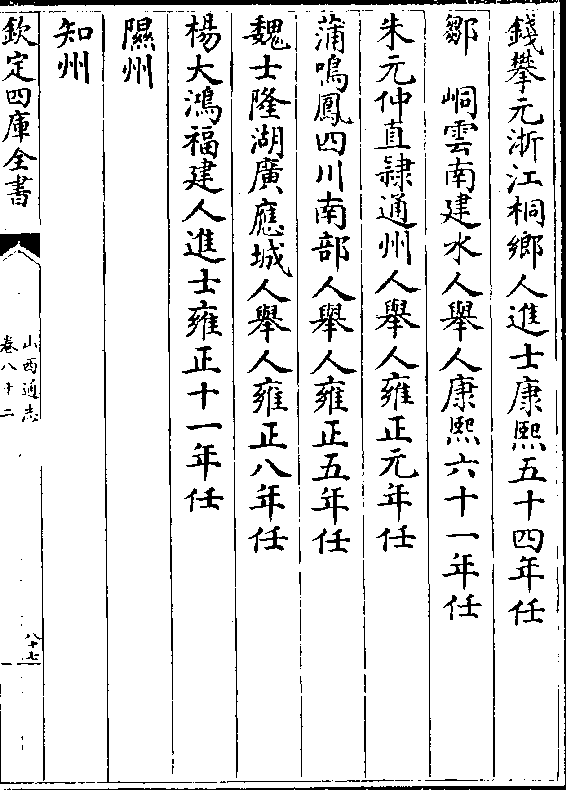 錢攀元浙江桐鄉人進士康熙五十四年任
鄒　峒雲南建水人舉人康熙六十一年任
朱元仲直隸通州人舉人雍正元年任
蒲鳴鳳四川南部人舉人雍正五年任
魏士隆湖廣應城人舉人雍正八年任
楊大鴻福建人進士雍正十一年任
隰州
知州
欽定四庫全書
山西通志
卷八十二
八十七